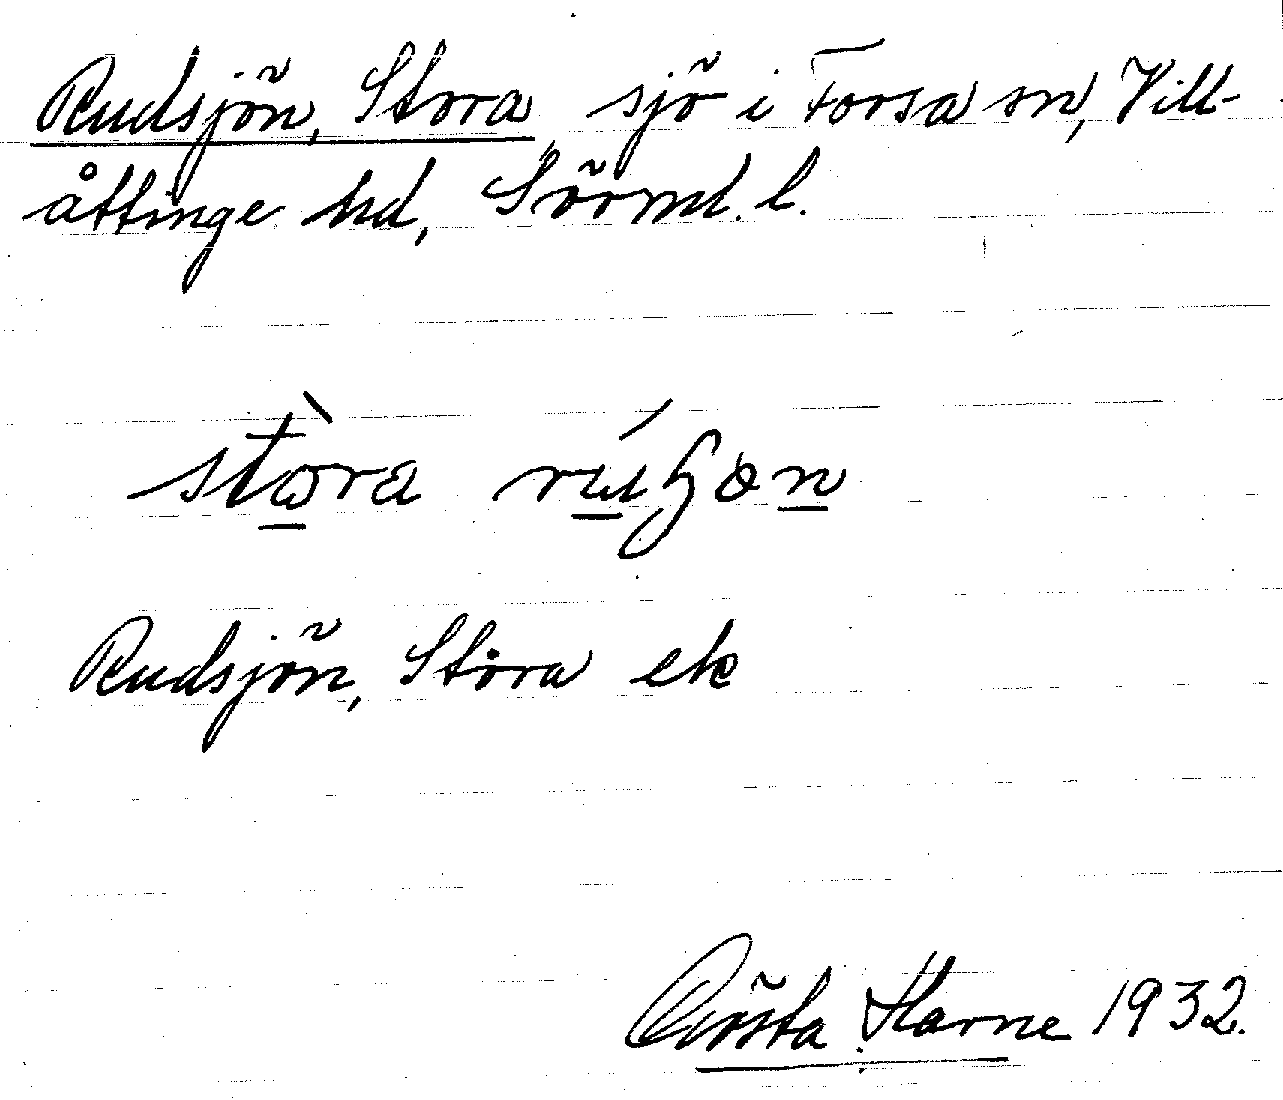 Rudsjön, Stora sjö i Forsa sn, Vill-
åttinge hd, Sörml. l.
stòra
Rudsjön, Stora ek
Gösta Harne 1932.